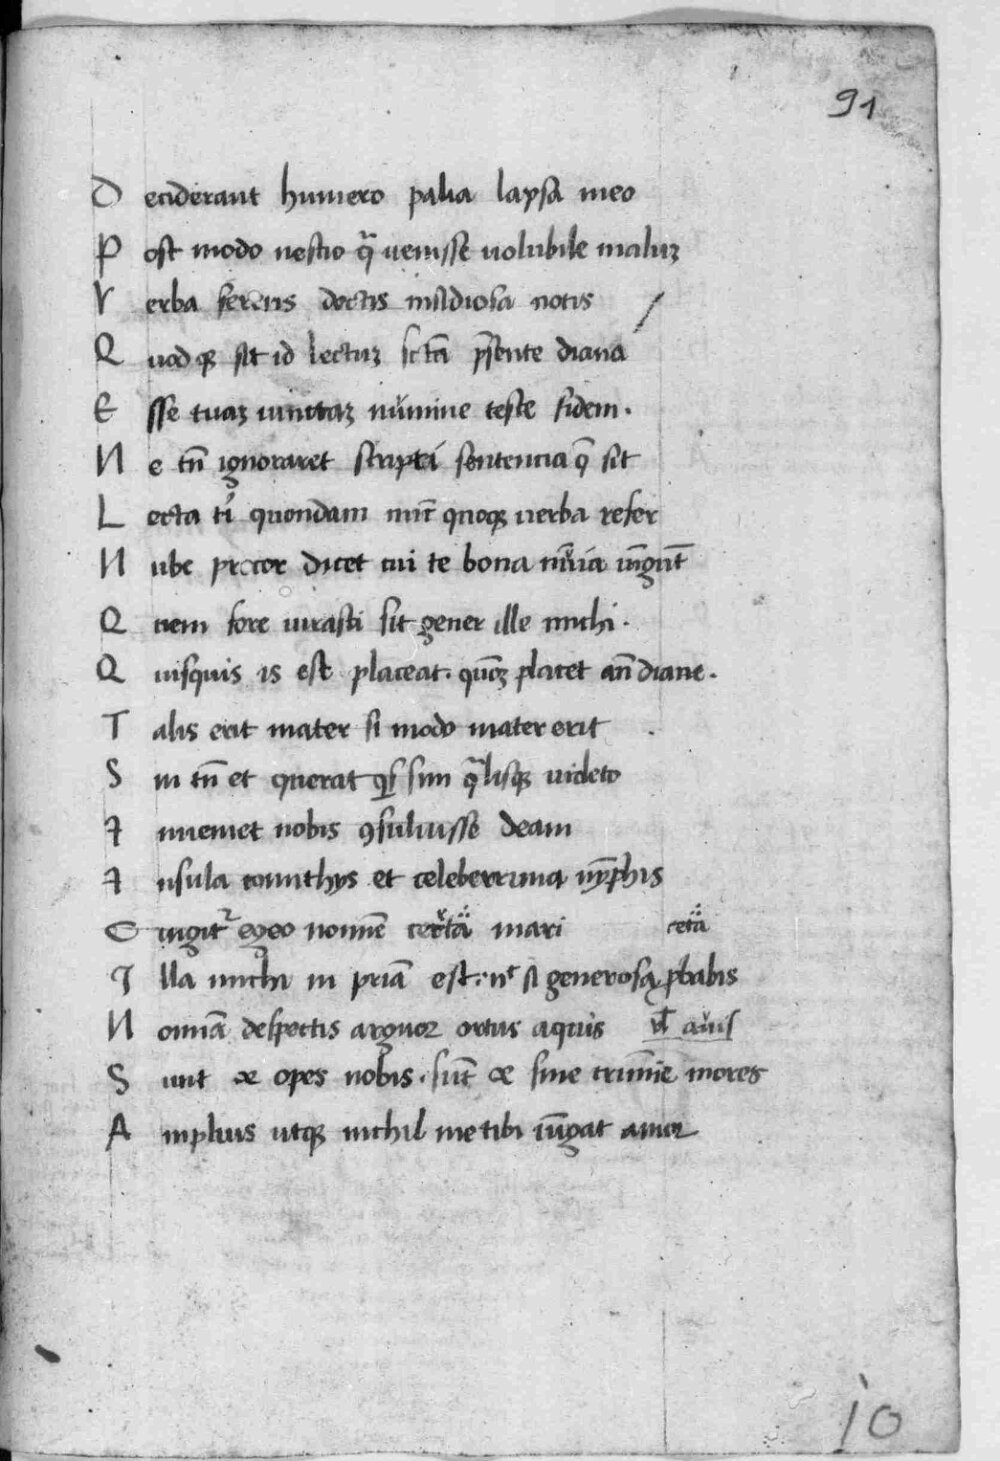 91
Deciderant humero palia lapsa meo
Post modo nescio qͣ uenisse uolubile maluʒ
Verba ferens doctis insidiosa notis /
Quod qꝫ sit id lectuʒ sc̄tā p̄sente diana
Esse tuaʒ uinctaʒ numine teste fidem.
Ne tn̄ ignoraret scripti sentencia q̄ sit
Lecta ti quondam nūc quoqꝫ uerba refer
Nube precor dicet cui te bona nūīa iūgūt
Quem fore iurasti sit gener ille michi.
Quisquis is est placeat. quoʒ placet an̄ diane.
Talis erit mater si modo mater erit .
Sin tn̄ et querat qͥs sim qͣlisqꝫ uideto
Inueniet nobis ꝯsuluisse deam
Insula corinthys et celeberrima nȳphis
Cingitͬ egeo nomīe certā mari cetā
Illa michi in priā est. nͨ si generosa ꝓbabis
Nomīa despectis arguor ortus aquis ul̄ auis
Sunt & opes nobis. sūt & sine crimīe mores
Amplius utqꝫ nichil me tibi iūgat amor
10